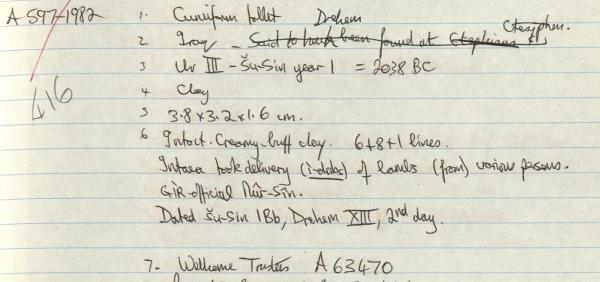 A 597-1982
1. Cuneiform tablet Drehem
Ctesiphon.
2 Iraq - Said to have been found at Ctesiphon
3 Ur III - Šu-Sin year 1 = 2038 BC
416
4 Clay
5 3.8 x 3.2 x 1.6 cm.
6 Intact. Creamy-buff clay. 6+8+1 lines.
Intaea took delivery (ì-dab₅) of lambs (from) various persons.
GÌR-official Nûr-Sîn.
Dated Šu-Sin 1Bb, Drehem XIII, 2nd day.
7- Wellcome Trustees A 63470